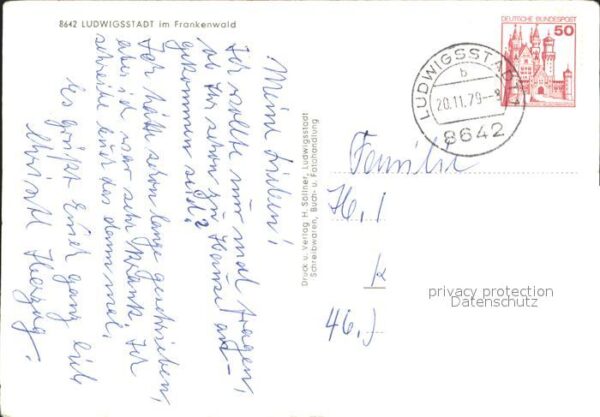 8642 LUDWIGSSTADT im Frankenwald
Meine Lieben!
Ich wollte nur mal fragen,
ob Ihr schon zu Hause an-
gekommen seid?
Ich hätte schon lange geschrieben,
aber ich war sehr krank. Ich
schreibe Euch das dann mal.
Es grüßt Euch ganz lieb
Herzog.
Druck u. Verlag H. Söllner, Ludwigsstadt
Schreibwaren, Buch- u. Fotohandlung
DEUTSCHE BUNDESPOST
50
LUDWIGSSTADT
b
20.11.79
8642
Familie
H. 
k
46
privacy protection
Datenschutz